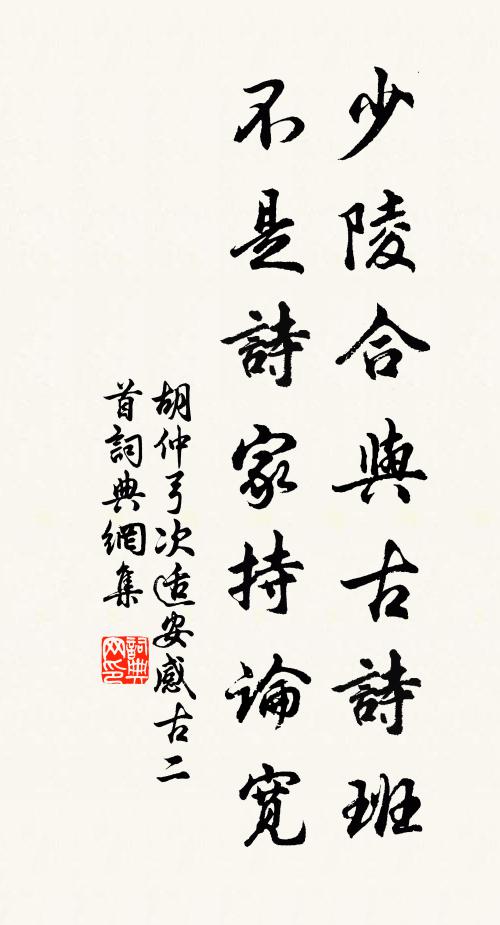 少陵合與古詩班
不是詩家持論寬
胡仲弓次適安感古二
首詞典網集
詞典
網印